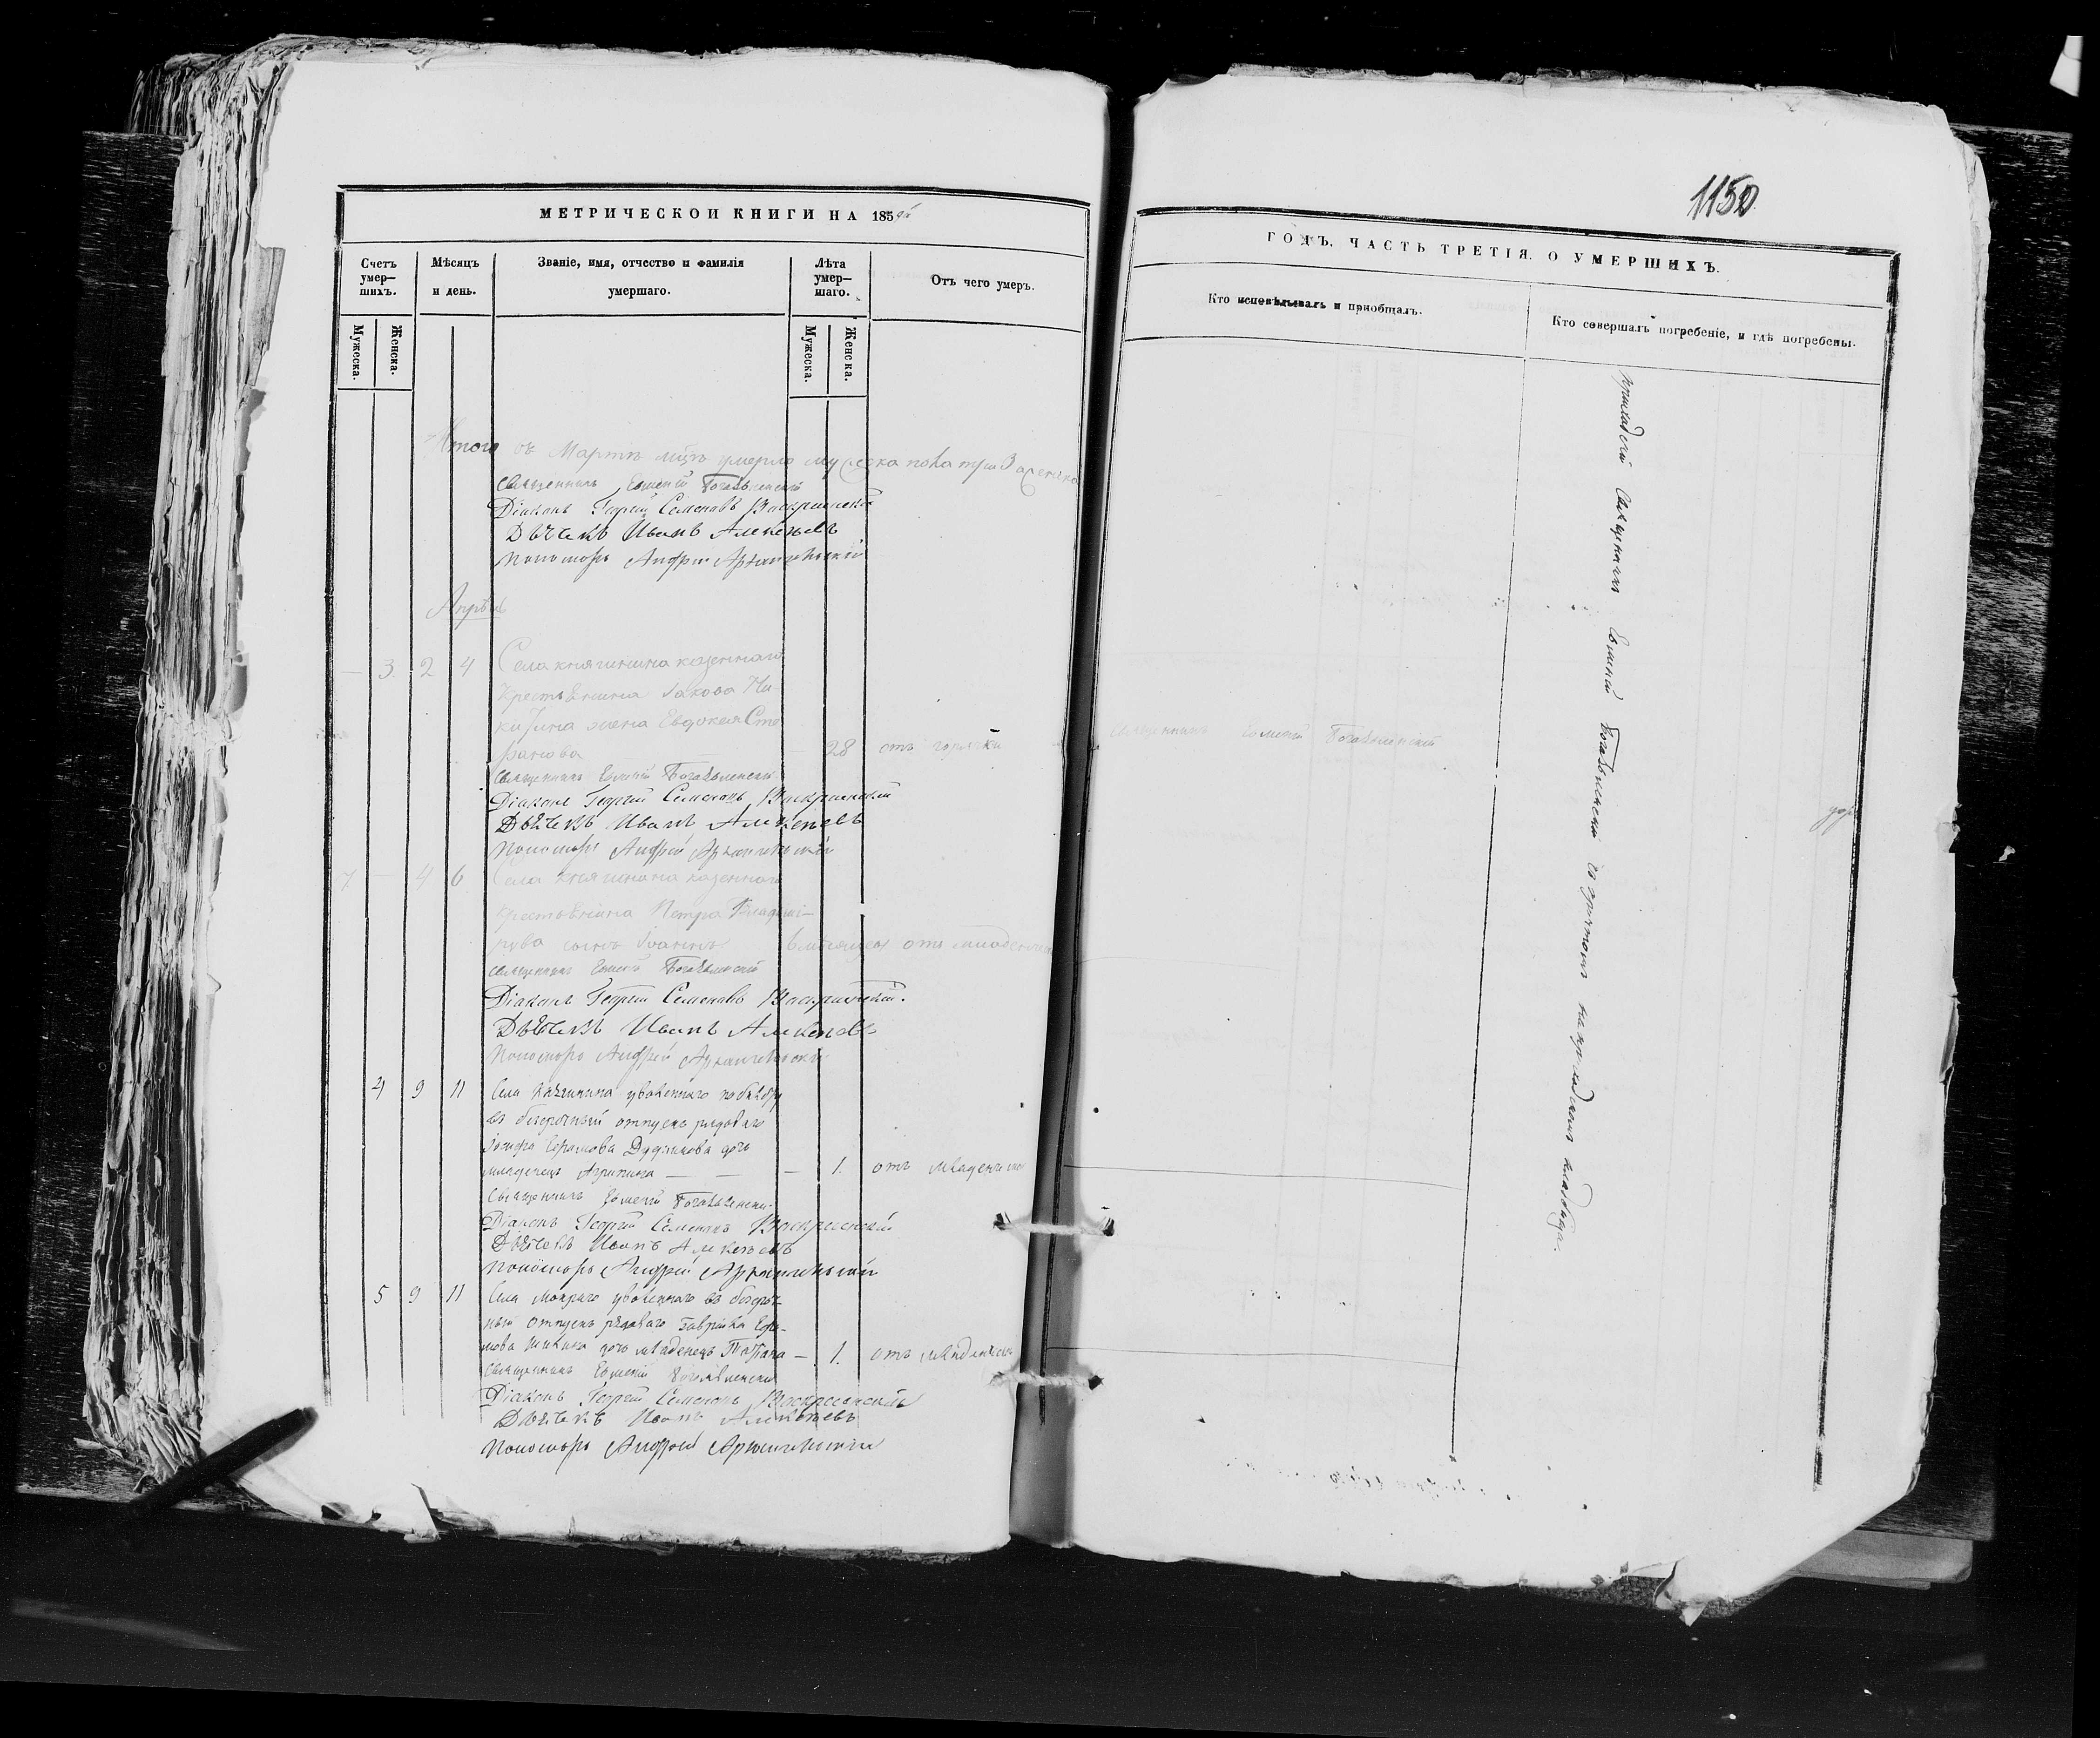 МЕТРИЧЕСКОЙ КНИГИ НА 1859й
Счетъ умер—шихъ.
Мѣсяцъ и день.
Званіе, имя, отчество и фамилія умершаго.
Лѣта умер—шаго.
Отъ чего умеръ.
Мужеска.
Женска.
Мужеска.
Женска.
Итого въ Мартѣ мцѣ умерло мужеска пола три 3 а женска
Священникъ Богоявленскій
Діаконъ Георгій Семеновъ Воскресенскій
Дьячекъ Иванъ Алексѣевъ
Пономарь Андрей Архангельскій
Апрѣль
— 3. 2 4 Села княгинина казеннаго
крестьянина Іакова Ни-
китина жена Евдокея Сте
фанова — 28 отъ горячки
Священникъ Богоявленскій
Діаконъ Георгій Семеновъ Воскресенскій
Дьячекъ Иванъ Алексѣевъ
Пономарь Андрей Архангельскій
7 — 4 6 Села княгинина казеннаго
крестьянина Петра Владими-
рова сынъ Іоаннъ отъ младенческ
Священникъ Богоявленскій
Діаконъ Георгій Семеновъ Воскресенскій.
Дьячекъ Иванъ Алексѣевъ
Пономарь Андрей Архангельскій
4 9 11 Села княгинина уволеннаго
въ безсрочный отпускъ рядоваго
Дудникова дочь
младенецъ Агрипина — — — 1. отъ младенческ
Священникъ Богоявленскій
Діаконъ Георгій Семеновъ Воскресенскій
Дьячекъ Иванъ Алексѣевъ
Пономарь Андрей Архангельскій
5 9 11 Села уволеннаго въ безсроч-
ный отпускъ рядоваго Гаврила
дочь младенецъ — 1. отъ младенческ
Священникъ Богоявленскій
Діаконъ Георгій Семеновъ Воскресенскій
Дьячекъ Иванъ Алексѣевъ
Пономарь Андрей Архангельскій
1150
ГОДЪ. ЧАСТЬ ТРЕТІЯ. О УМЕРШИХЪ.
Кто исповѣдывалъ и пріобщалъ.
Кто совершалъ погребеніе, и гдѣ погребены.
Священникъ Богоявленскій
приходскій Священникъ Богоявленскій съ причтомъ на приходскомъ кладбищѣ.